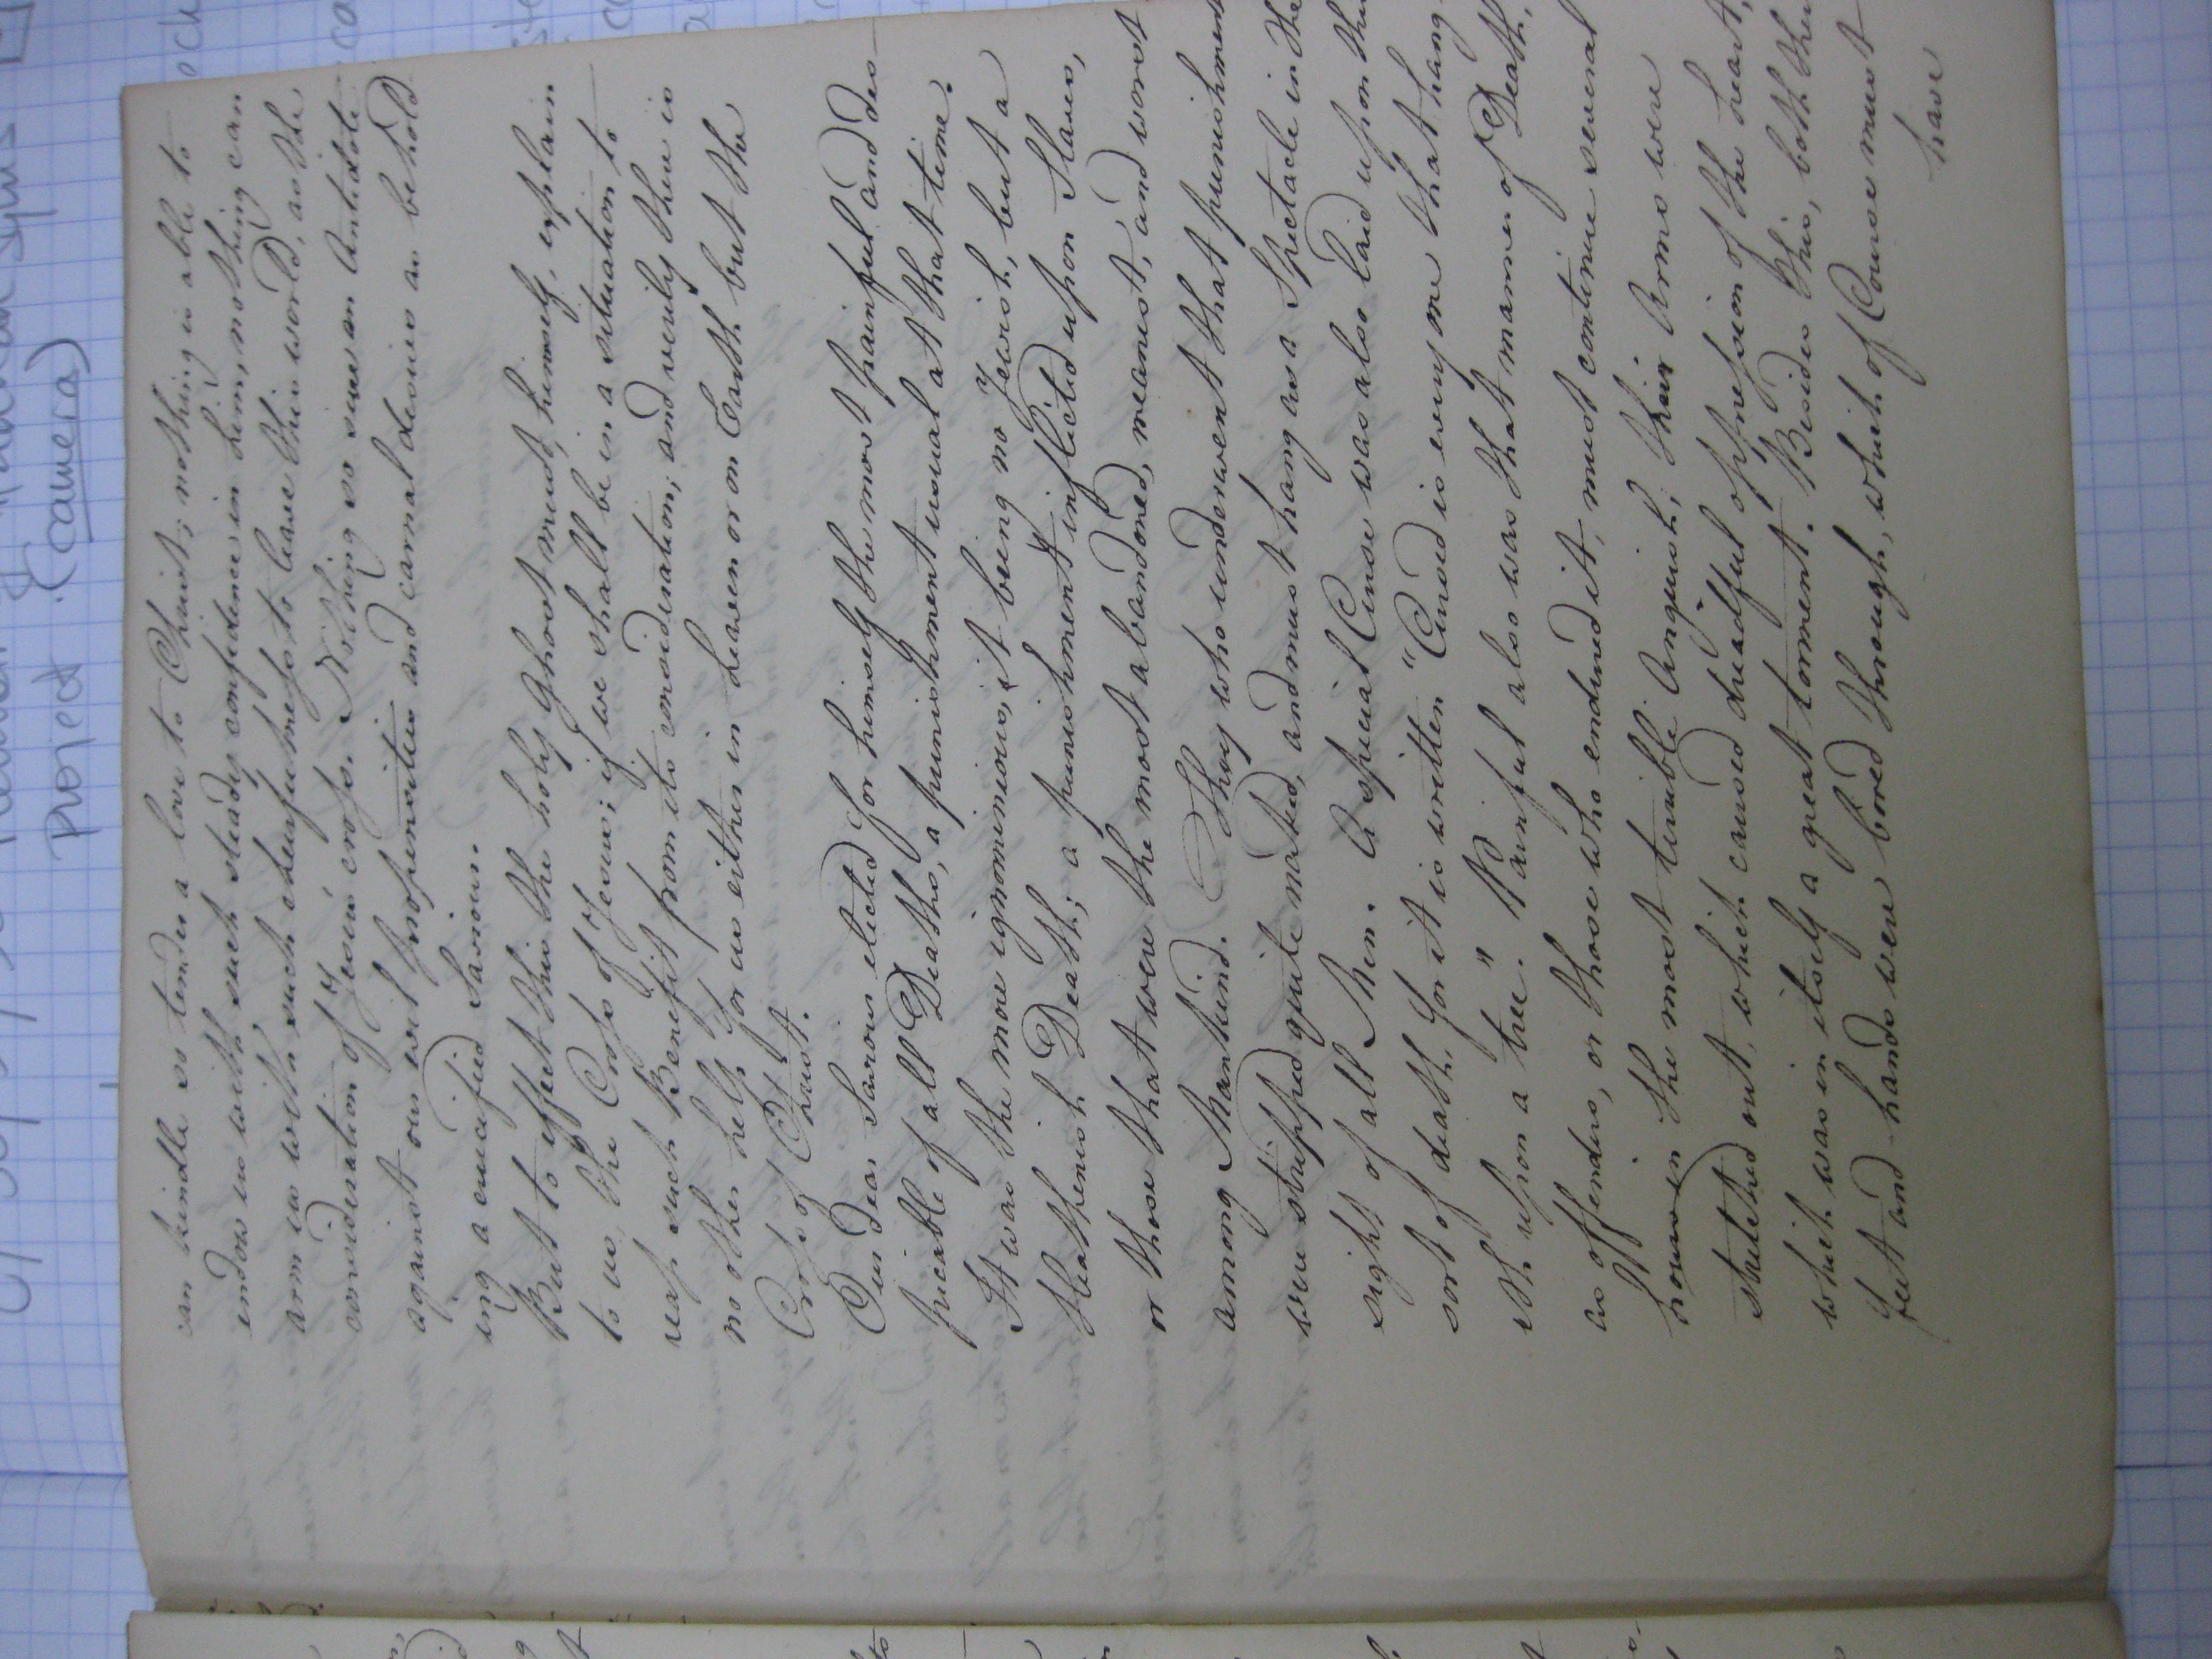 Project (camera)
can kindle so tender a love to Christ; nothing is able to
endow us with such steady confidence in him, nothing can
arm us with such chearfulness to leave this world, as the
consideration of Jesus' cross. Nothing so sure an Antidote
against our evil propensities and carnal desires as behold
ing a crucified Saviour.
But to effect this the holy Ghost must, himself, explain
to us, the Cross of Jesus; if we shall be in a situation to
reap such Benefit from its consideration; and verily there is
no other help for us either in heaven or on Earth but the
Cross of Christ.
Our dear Saviour elected for himself the most painful and des-
picable of all Deaths, a punishment usual at that time.
It was the more ignominious, it being no Jewish, but a
Heathenish Death; a punishment inflicted upon Slaves,
or those that were the most abandoned, meanest, and worst
among Mankind. They who underwent that punishment
were stripped quite naked, and must hang as a Spectacle in the
sight of all Men. A special Curse was also laid upon this
sort of death, for it is written "Cursed is every one that hang
eth upon a tree". Painful also was that manner of Death,
as offenders, or those who endured it, must continue several
hours in the most terrible Anguish; their Arms were
stretched out, which caused dreadful oppression of the heart,
which was in itself a great torment. Besides this, both their
feet and hands were bored through, which of Course must
have